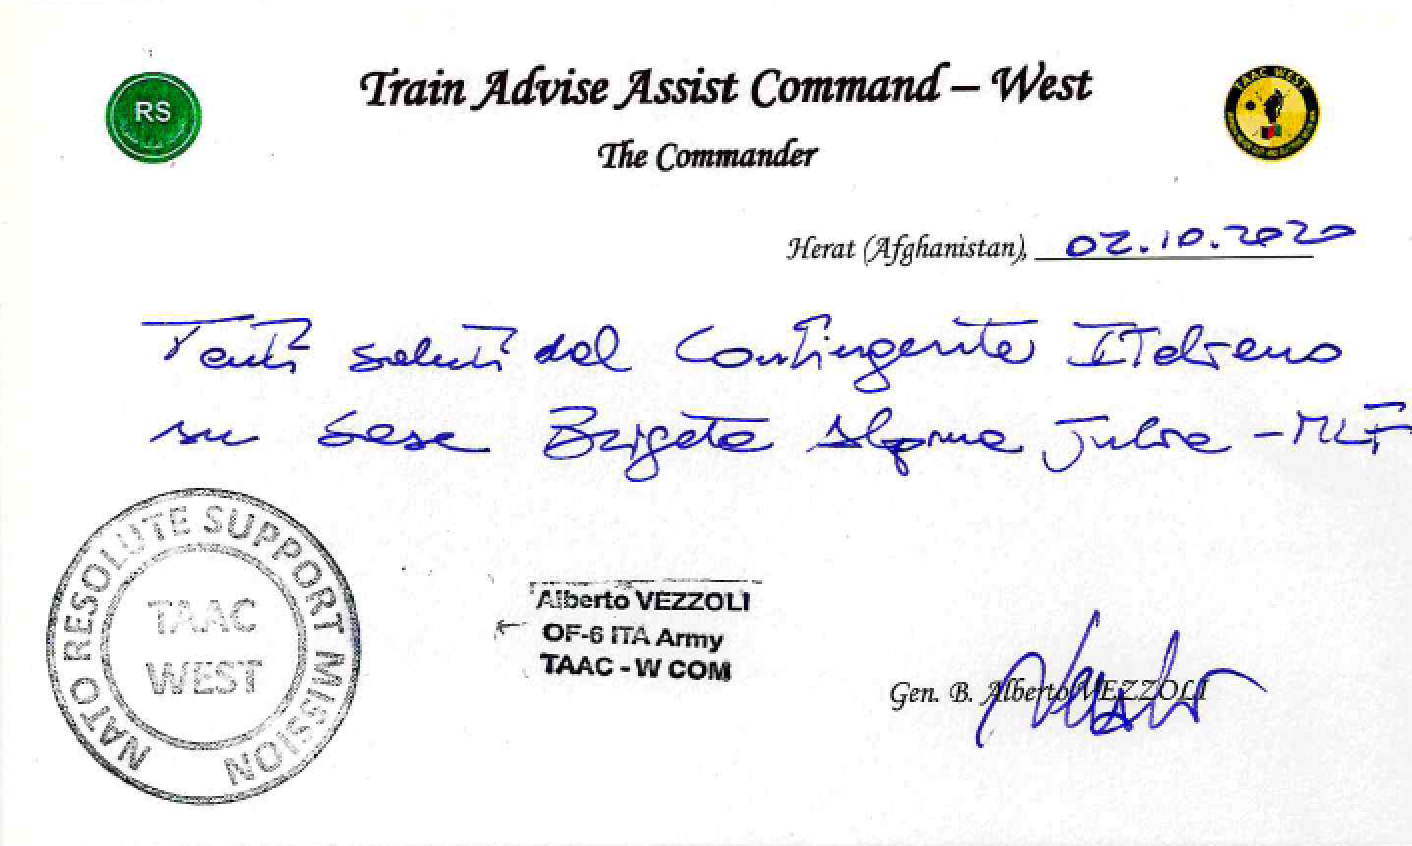 RS
Train Advise Assist Command – West
TAAC WEST
The Commander
Herat (Afghanistan), 02.10.2020
Tanti saluti dal Contingente Italiano
su base Brigata Alpina Julia - MLF
NATO RESOLUTE SUPPORT MISSION
TAAC
WEST
Alberto VEZZOLI
OF-6 ITA Army
TAAC - W COM
Gen. B. Alberto VEZZOLI